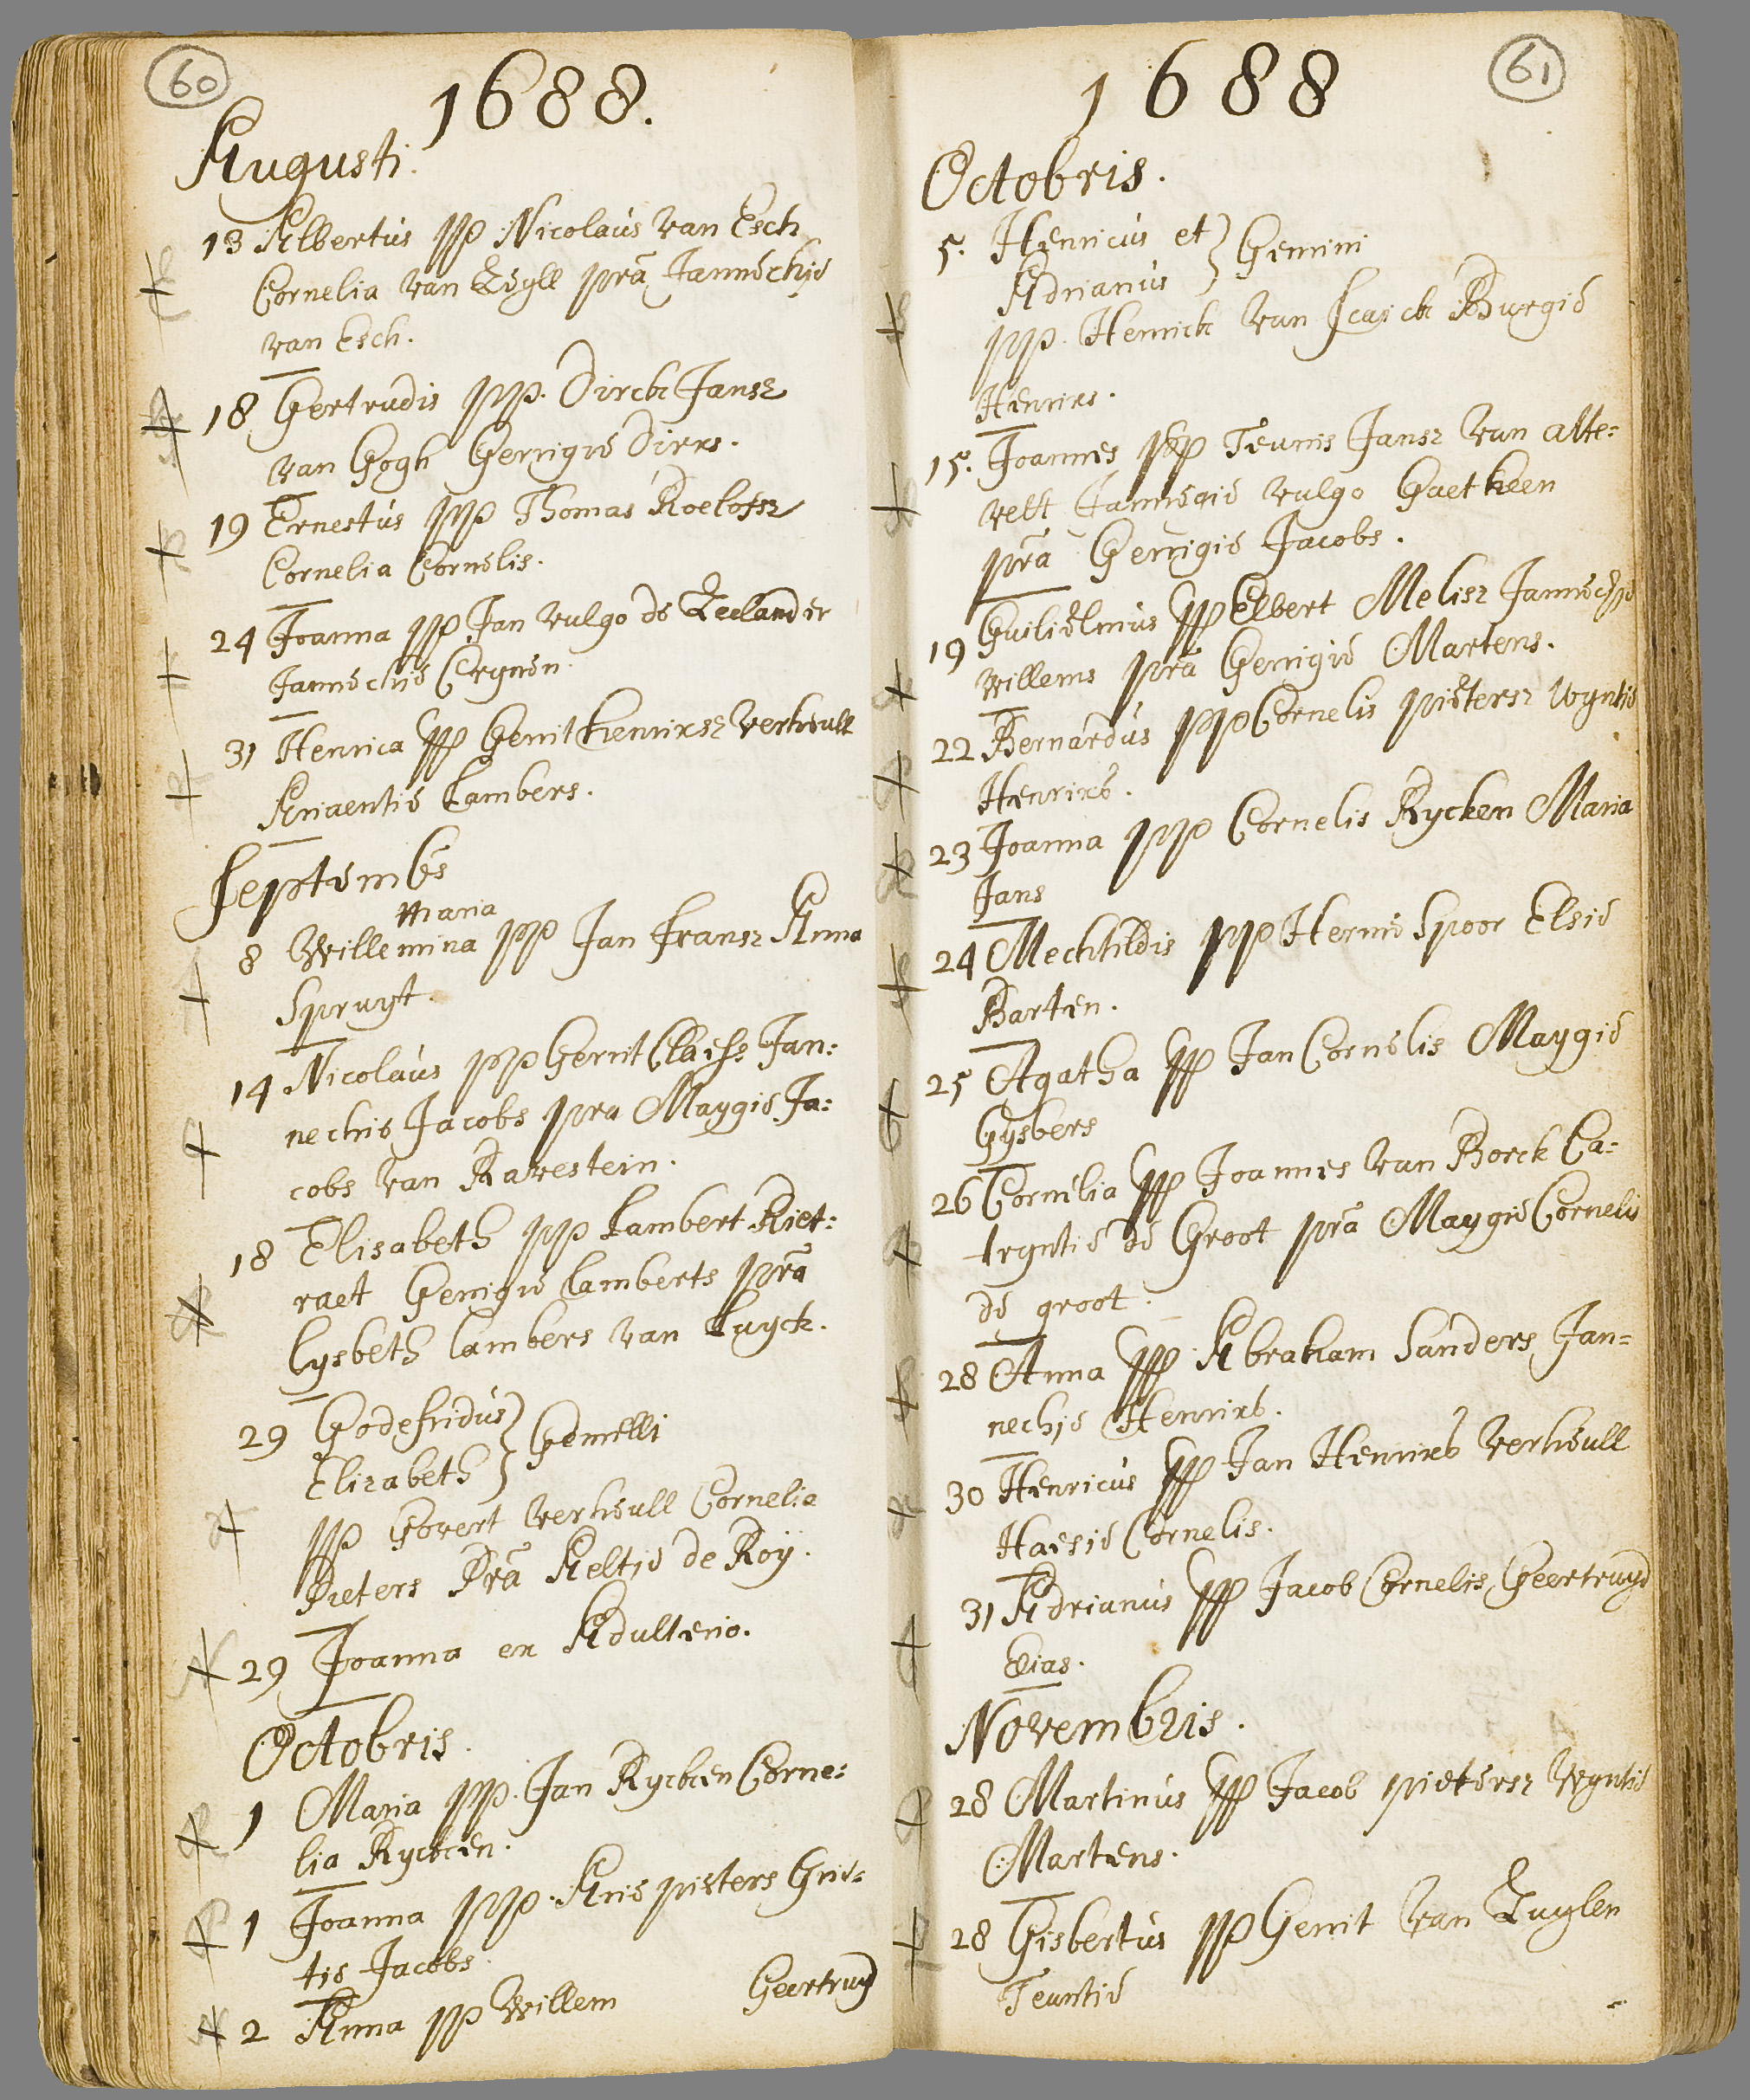 60
1688.
Augusti.
13 Albertus pp Nicolaus van Esch
Cornelia van Zeyll prã Jannechie
van Esch.
18 Gertrudis pp. Dirck Jansz
van Gogh Gerrigie Dirks.
19 Ernestus pp Thomas Roelofsz
Cornelia Cornelis.
24 Joanna pp Jan vulgo de Zeelander
Jannechie
31 Henrica pp Gerrit henrixsz verheull
Ariaentie Lambers.
Septembs
maria
8 Willemina pp Jan fransz Anna
Spruyt.
14 Nicolaus pp Gerrit Claess Jan:
nechie Jacobs pra Maygie Ja:
cobs van Ravestein.
18 Elisabeth pp Lambert Riet:
raet Gerrigie Lamberts prã
Lysbeth Lambers van Luyck.
29 Godefridus
Elizabeth } Gemelli
pp Govert verheull Cornelia
Pieters Prã Aeltie de Roÿ.
29 Joanna ex Adulterio.
Octobris.
1 Maria pp. Jan Rycken Corne:
lia Rycken.
1 Joanna pp Aris pieters Grie:
tie Jacobs
2 Anna pp Willem Geertruyd
61
1688
Octobris.
5. Henricus et
Adrianus } Gemini
pp. Henrick van Burgie
Henrixs.
15. Joannes pp Teunis Jansz van alte:
velt Jannegie vulgo Gaetheen
prã Gerrigie Jacobs.
19 Guilielmus pp Elbert Melisz Jannechie
willems prã Gerrigie Martens.
22 Bernardus pp Cornelis pietersz wyntie
Henrixs.
23 Joanna pp Cornelis Rycken Maria
Jans
24 Mechtildis pp Herme Spoor Elsie
Barten.
25 Agatha pp Jan Cornelis Maygie
Gysbers
26 Cornelia pp Joannes van Borck Ca:
tryntie de Groot prã Maygie Cornelis
de groot.
28 Anna pp Abraham Sanders Jan:
nechie Henrixs.
30 Henricus pp Jan Henrixs verheull
Haesie Cornelis.
31 Adrianus pp Jacob Cornelis Geertruyd
Elias.
Novembris.
28 Martinus pp Jacob pietersz Wyntie
Martens.
28 Gisbertus pp Gerrit van Zuylen
Teuntie